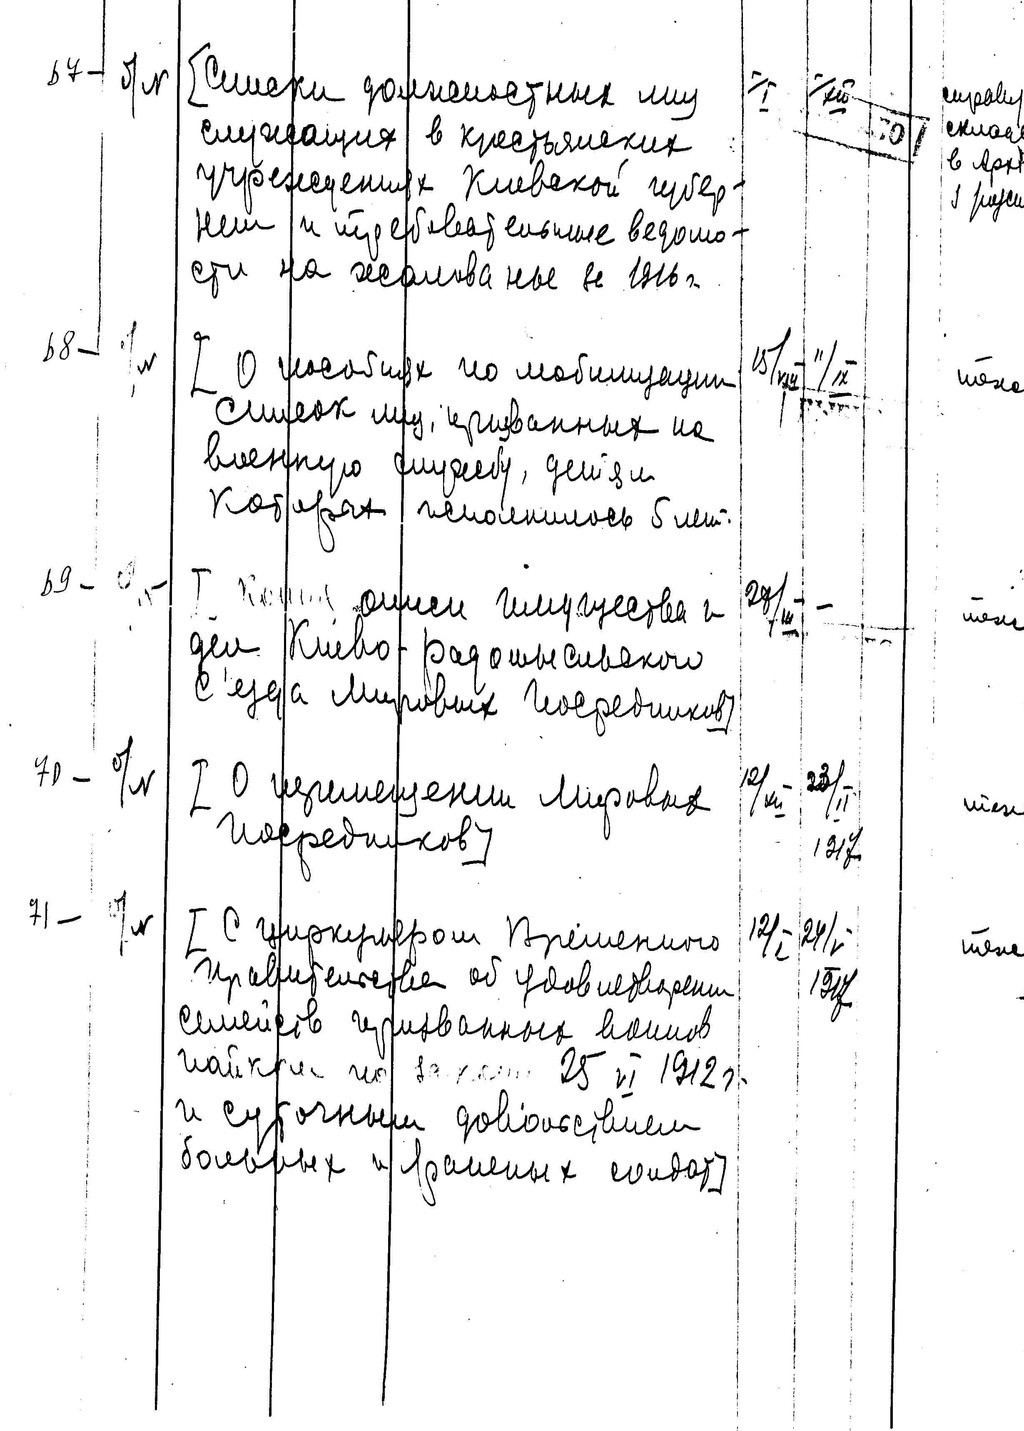 67 - б/N [Списки должностных лиц I/I I/XII
служащих в крестьянских
учреждениях Киевской губер-
нии и требовательные ведомо-
сти на жалованье за 1916 г.
справ
склад
в Арх
68 - б/N [О пособиях по мобилизации 15/VIII 11/IX
Список лиц, призванных на
военную службу, детям
которых исполнилось 5 лет.
69 - [Копия описи имущества и -
дел Киево-Радомысльского
С'езда Мировых Посредников]
70 - б/N [О перемещении Мировых 12/XII 23/II
Посредников] 1917
71 - б/N [С циркуляром Временного 12/I 24/V
Правительства об удовлетворении 1917
семейств призванных воинов
пайком по закону 25 VI 1912 г.
и суточным довольствием
больных и раненых солдат]